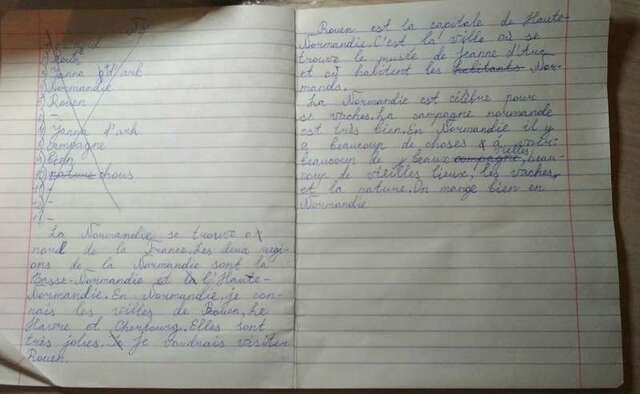 Rouen
Janna d'ark
Normandie
Rouen
-
Janna d'ark
campagne
-
-
La Normandie se trouve
nord de la France. Les deux regi-
ons de la Normandie sont la
Basse-Normandie et la l'Haute-
Normandie. En Normandie, je con-
nais les villes de Rouen, Le
Havre et Cherbourg. Elles sont
très jolies. Je je voudrais visiter
Rouen.
Rouen est la capitale de Haute-
Normandie. C'est la ville où se
trouve le musée de Jeanne d'Arc
et où habitent les habitants Nor-
mands.
La Normandie est célèbre pour
se vaches. La campagne normande
est très bien. En Normandie il y
a beaucoup de choses à
beaucoup de beaux campagne, villes, beau-
coup de vieilles lieux, les vaches,
et la nature. On mange bien en
Normandie